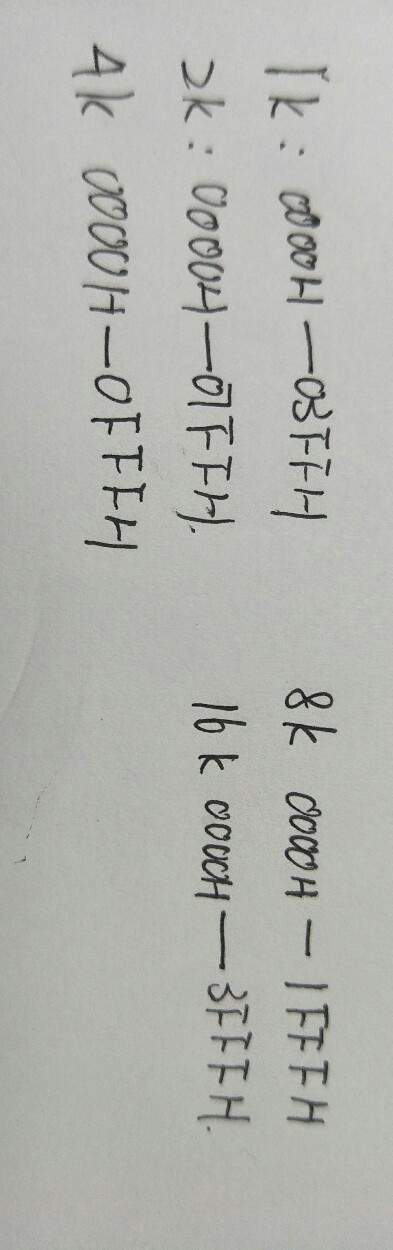 1k: 0000H—03FFH
2k: 0000H—07FFH.
4k 0000H—0FFFH
8k 0000H—1FFFH
16k 0000H—3FFFH.